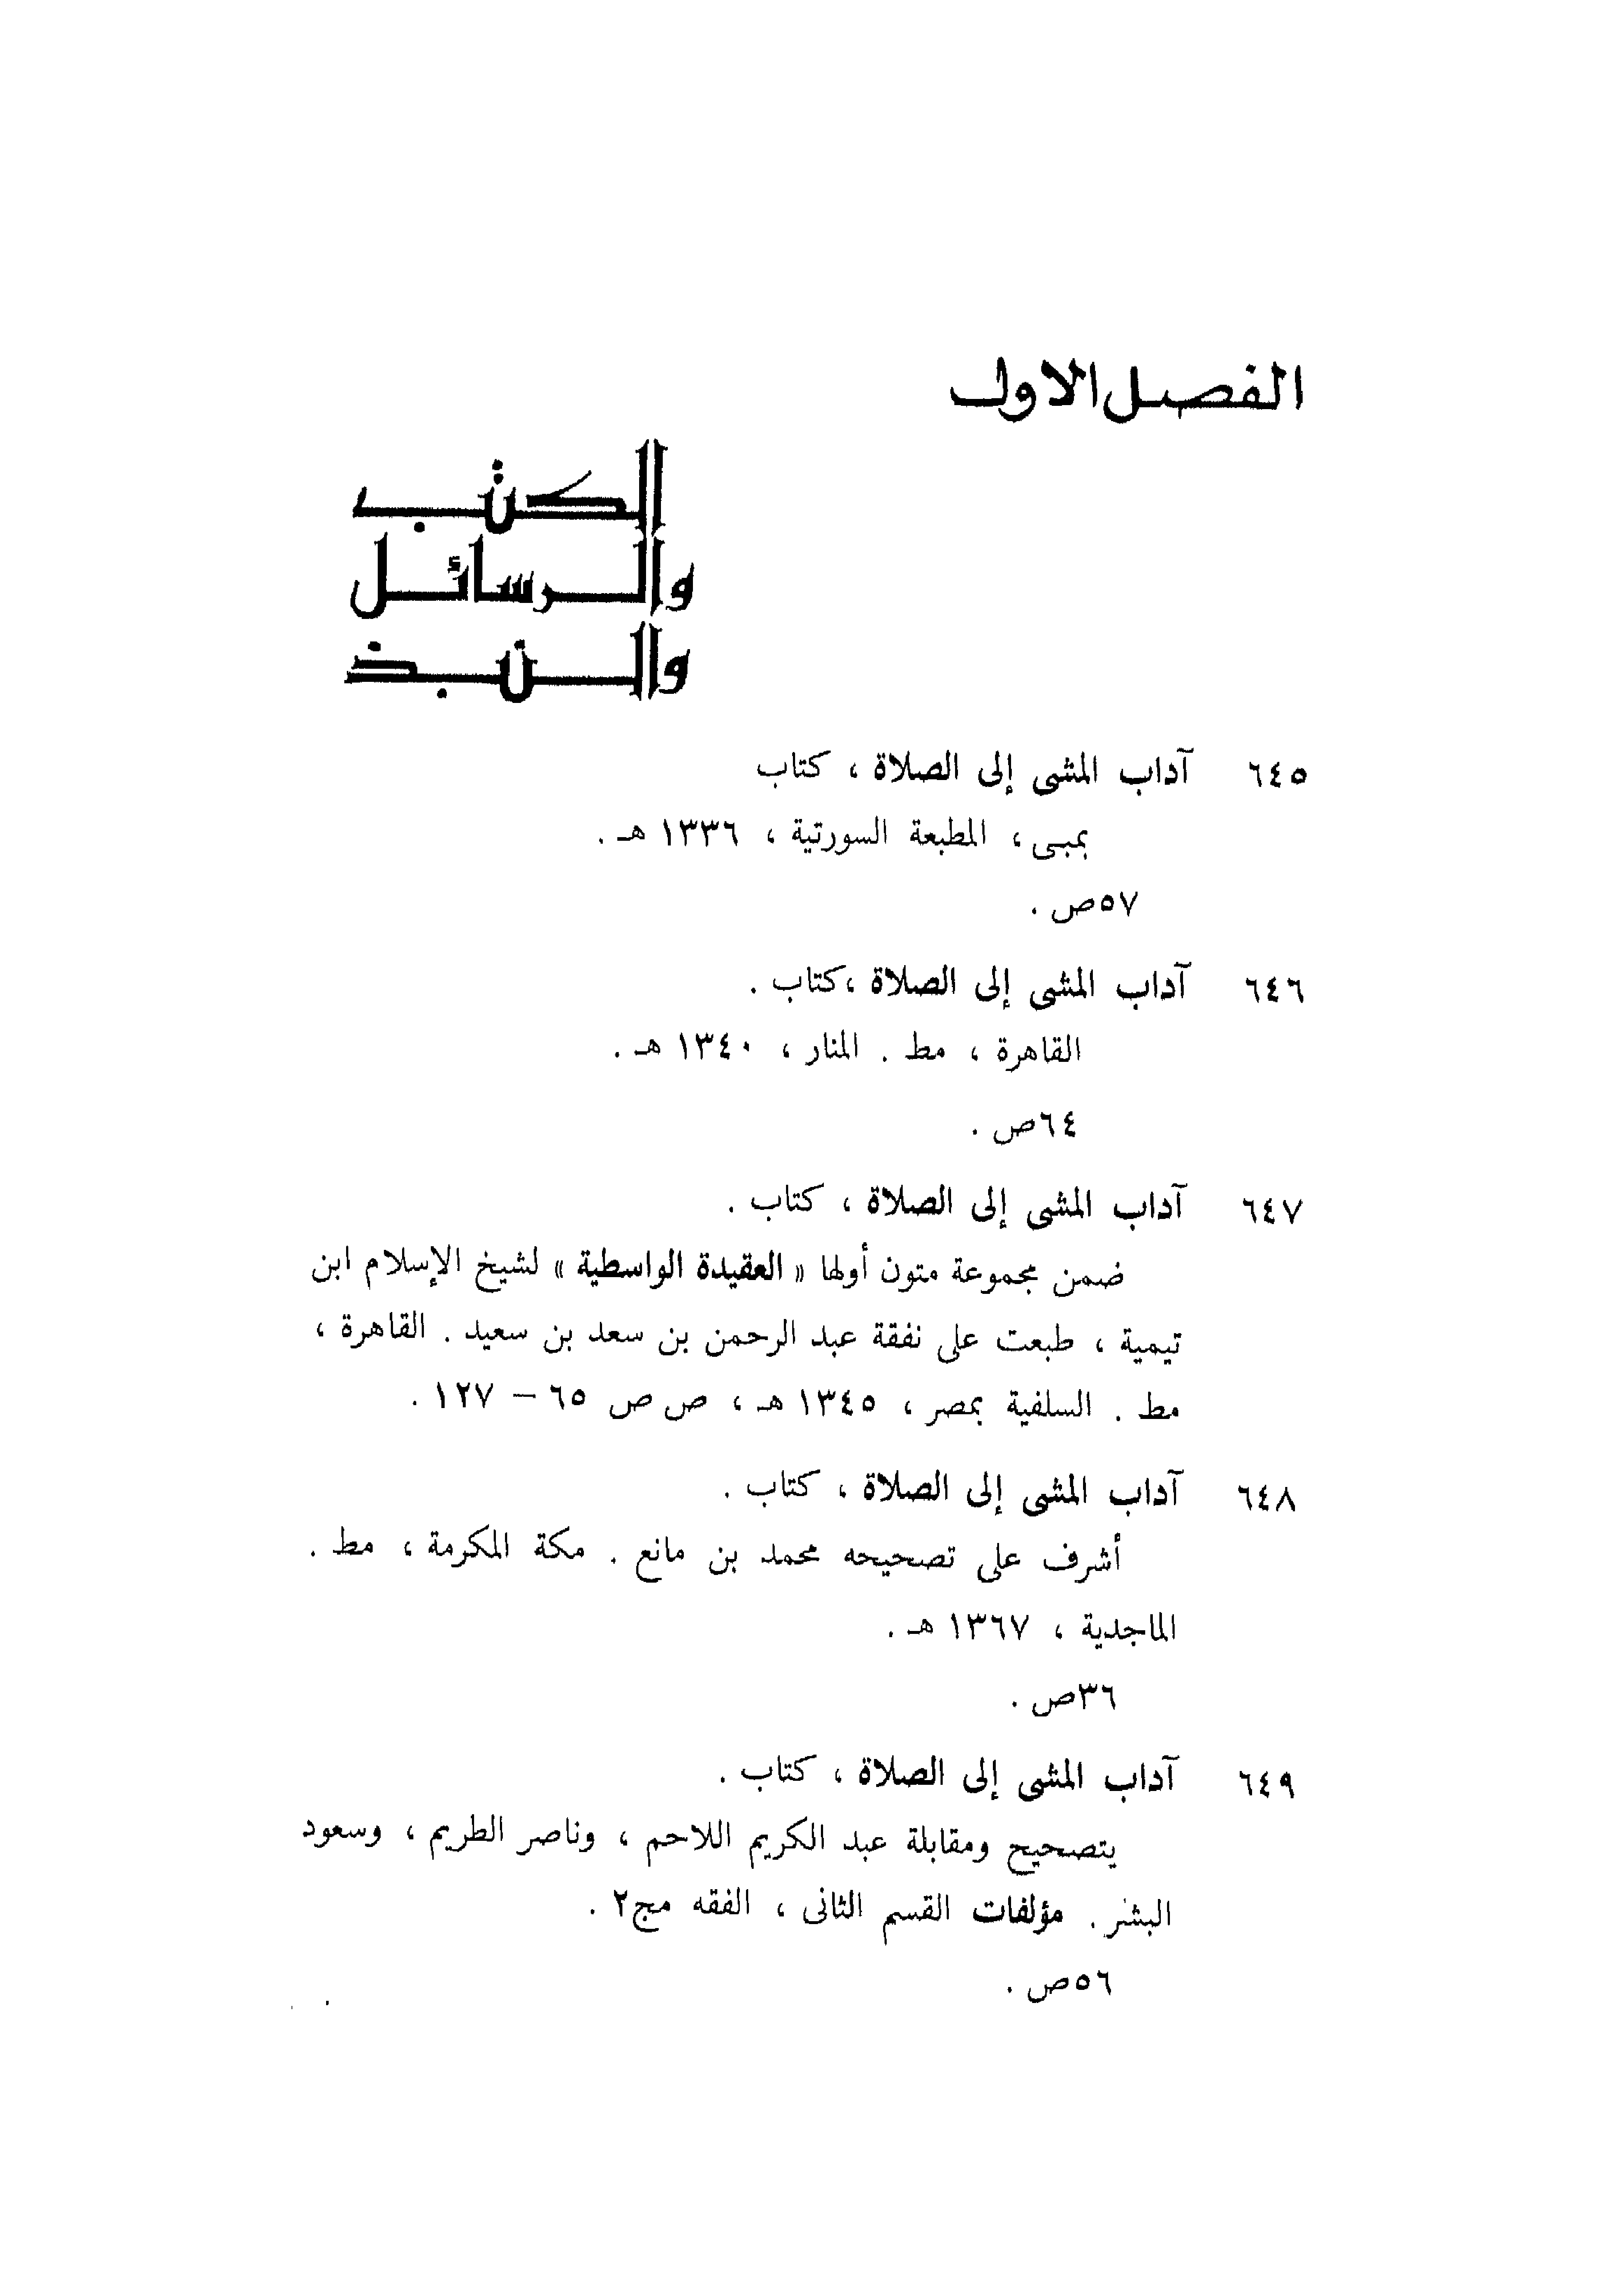 الفصل الاول
الكتب
والرسائل
والنبذ
٦٤٥ آداب المشى إلى الصلاة ، كتاب
بمبى ، المطبعة السورتية ، ١٣٣٦ هـ .
٥٧ص .
٦٤٦ آداب المشى إلى الصلاة ،كتاب .
القاهرة ، مط . المنار ، ١٣٤٠ هـ .
٦٤ص .
٦٤٧ آداب المشى إلى الصلاة ، كتاب .
ضمن مجموعة متون أولها « العقيدة الواسطية » لشيخ الإسلام ابن
تيمية ، طبعت على نفقة عبد الرحمن بن سعد بن سعيد . القاهرة ،
مط . السلفية بمصر ، ١٣٤٥ هـ ، ص ص ٦٥ – ١٢٧ .
٦٤٨ آداب المشى إلى الصلاة ، كتاب .
أشرف على تصحيحه محمد بن مانع . مكة المكرمة ، مط .
الماجدية ، ١٣٦٧ هـ .
٣٦ص .
٦٤٩ آداب المشى إلى الصلاة ، كتاب .
يتصحيح ومقابلة عبد الكريم اللاحم ، وناصر الطريم ، وسعود
البشر . مؤلفات القسم الثانى ، الفقه مج٢ .
٥٦ص .